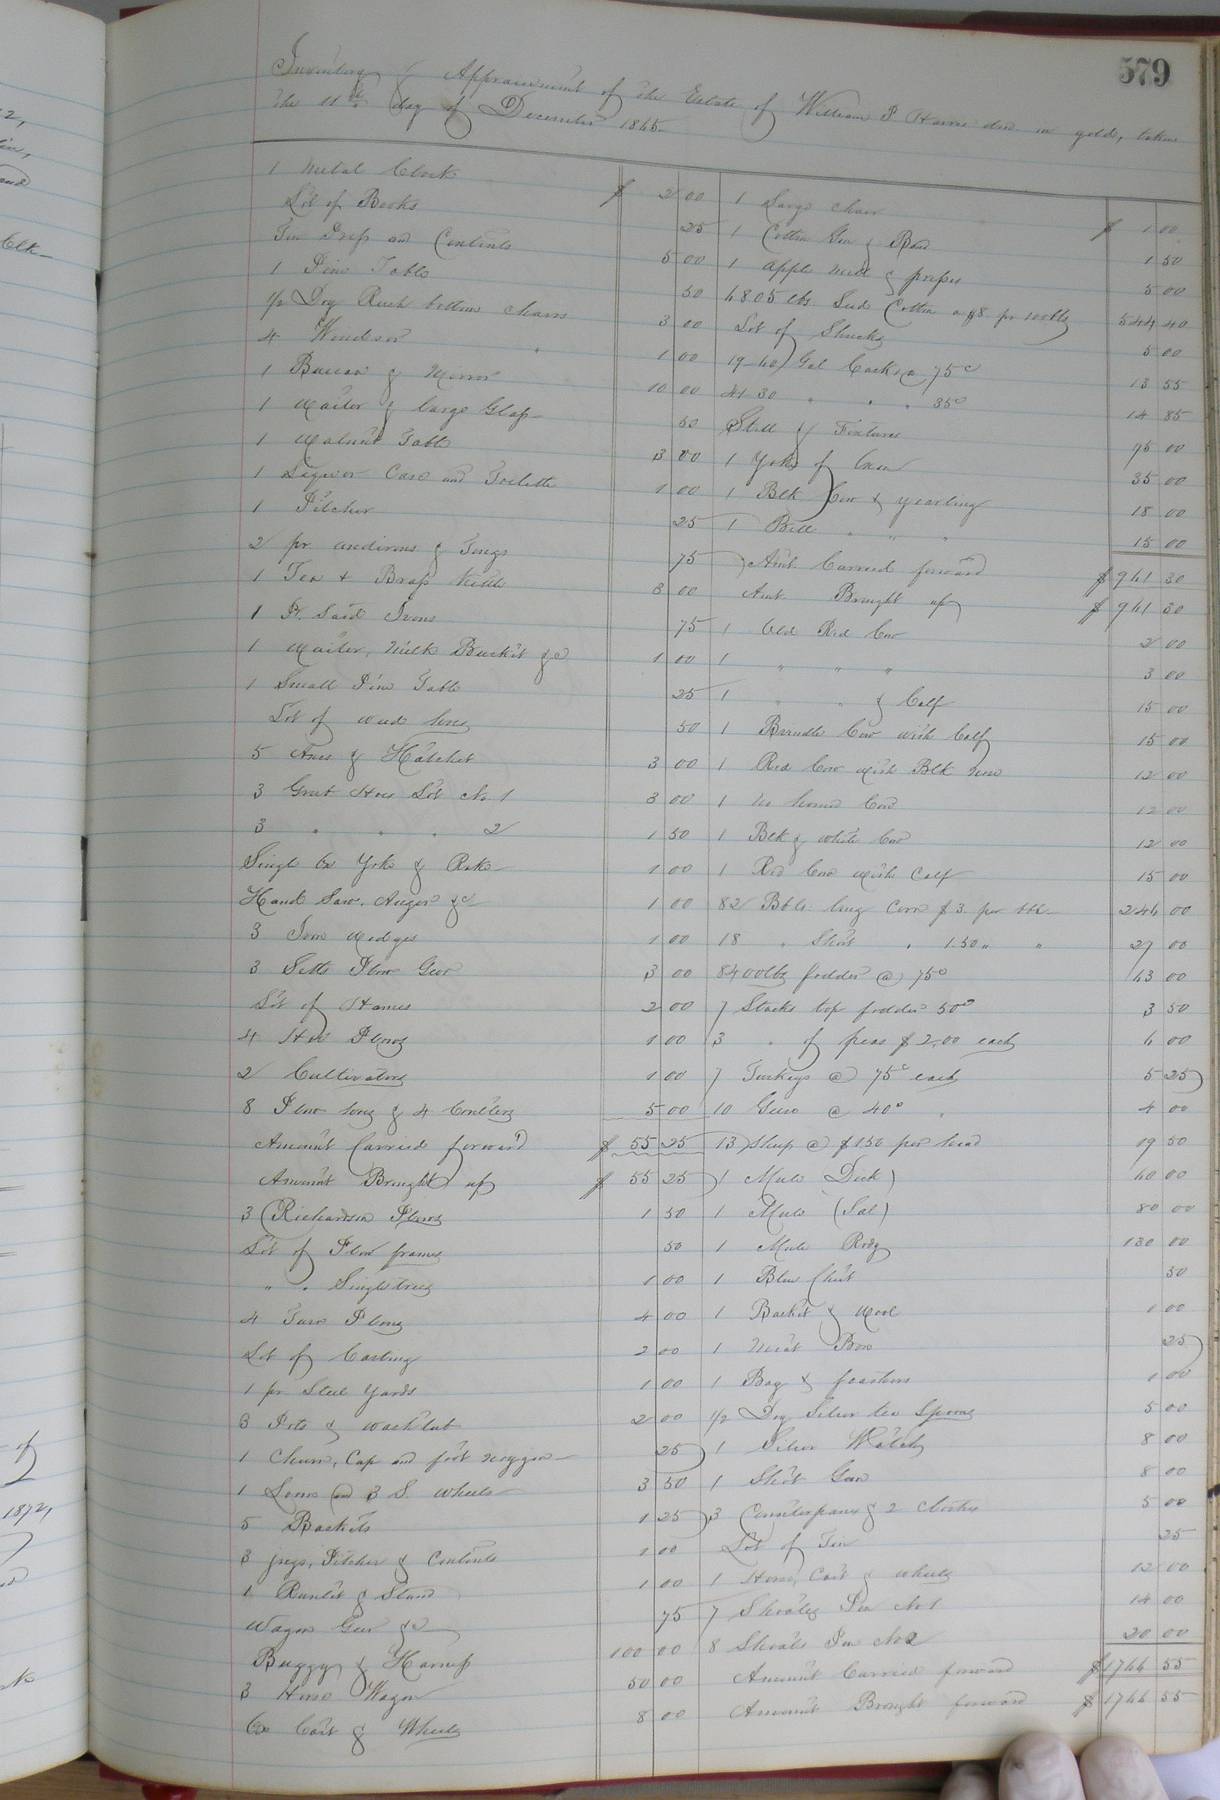 579
Inventory & Appraisement of the Estate of William P Harris decd in gold, taken
the 11th day of December 1865.
1 Metal Clock $ 2 00
Lot of Books 25
Tin Press and Contents 5 00
1 Pine Table 50
1/2 Doz Rush bottom chairs 3 00
4 Windsor " 1 00
1 Bureau & Mirror 10 00
1 Waiter & large Glass 50
1 Walnut Table 3 00
1 Liquor Case and Toilette 1 00
1 Pitcher 25
2 pr andirons & Tongs 75
1 Tea & Brass Kettle 3 00
1 Pr. Sad Irons 75
1 Waiter, Milk Bucket &c 1 00
1 Small Pine Table 25
Lot of weed hoes 50
5 Axes & Hatchet 3 00
3 Grub Hoes Lot No 1 3 00
3 " " " 2 1 50
Single Ox Yoke & Rake 1 00
Hand Saw, Auger &c 1 00
3 Iron Wedges 1 00
3 Setts Plow Gear 3 00
Lot of Hames 2 00
4 Hoe Plows 1 00
2 Cultivators 1 00
8 Plow hoes & 4 Coulters 5 00
Amount Carried forward $ 55 25
Amount Brought up $ 55 25
3 Richardson Plows 1 50
Lot of Plow frames 50
" " Singletrees 1 00
4 Turn Plows 4 00
Lot of Casting 2 00
1 pr Steel Yards 1 00
3 Pots & wash tub 2 00
1 Churn, Cap and foot noggin 25
1 Loom and 3 S. wheels 3 50
5 Baskets 1 25
3 jugs, Pitcher & Contents 1 00
1 Runlet & Stand 1 00
Wagon Gear &c 75
Buggy & Harness 100 00
3 Horse Wagon 50 00
Ox Cart & Wheels 8 00
1 Large chair $ 1 00
1 Cotton Gin & Band 1 50
1 Apple Mill & press 5 00
6805 lbs Seed Cotton a $8 pr 100lbs 544 40
Lot of Shucks 5 00
19-40 Gal Casks @ 75c 13 55
41 30 " " " 35c 14 85
Still & Fixtures 75 00
1 Yoke of Oxen 35 00
1 Blk Cow & yearling 18 00
1 Bell " " " 15 00
Amt Carried forward $ 941 30
Amt. Brought up $ 941 30
1 Old Red Cow 2 00
1 " " " 3 00
1 " " & Calf 15 00
1 Brindle Cow with Calf 15 00
1 Red Cow with Blk nose 12 00
1 No horned Cow 12 00
1 Blk & white Cow 12 00
1 Red Cow with Calf 15 00
82 Bbls long Corn $3 per bbl 246 00
18 " Short " 1.50 " " 27 00
8400lbs fodder @ 75c 63 00
7 Stacks top fodder 50c 3 50
3 " of peas $2.00 each 6 00
7 Turkeys @ 75c each 5 25
10 Geese @ 40c " 4 00
13 Sheep @ $1.50 per head 19 50
1 Mule Dick) 60 00
1 Mule (Sal) 80 00
1 Mule Rody 130 00
1 Blue Chest 50
1 Basket & Wool 1 00
1 Meat Box 25
1 Bag & feathers 1 00
1/2 Doz Silver tea Spoons 5 00
1 Silver Watch 8 00
1 Shot Gun 8 00
3 Counterpanes & 2 Clothes 5 00
Lot of Tin 25
1 Horse Cart & wheels 12 00
7 Shoats Pen No 1 14 00
8 Shoats Pen No 2 20 00
Amount Carried forward $ 1766 55
Amount Brought forward $ 1766 55
Clk
of
1872,